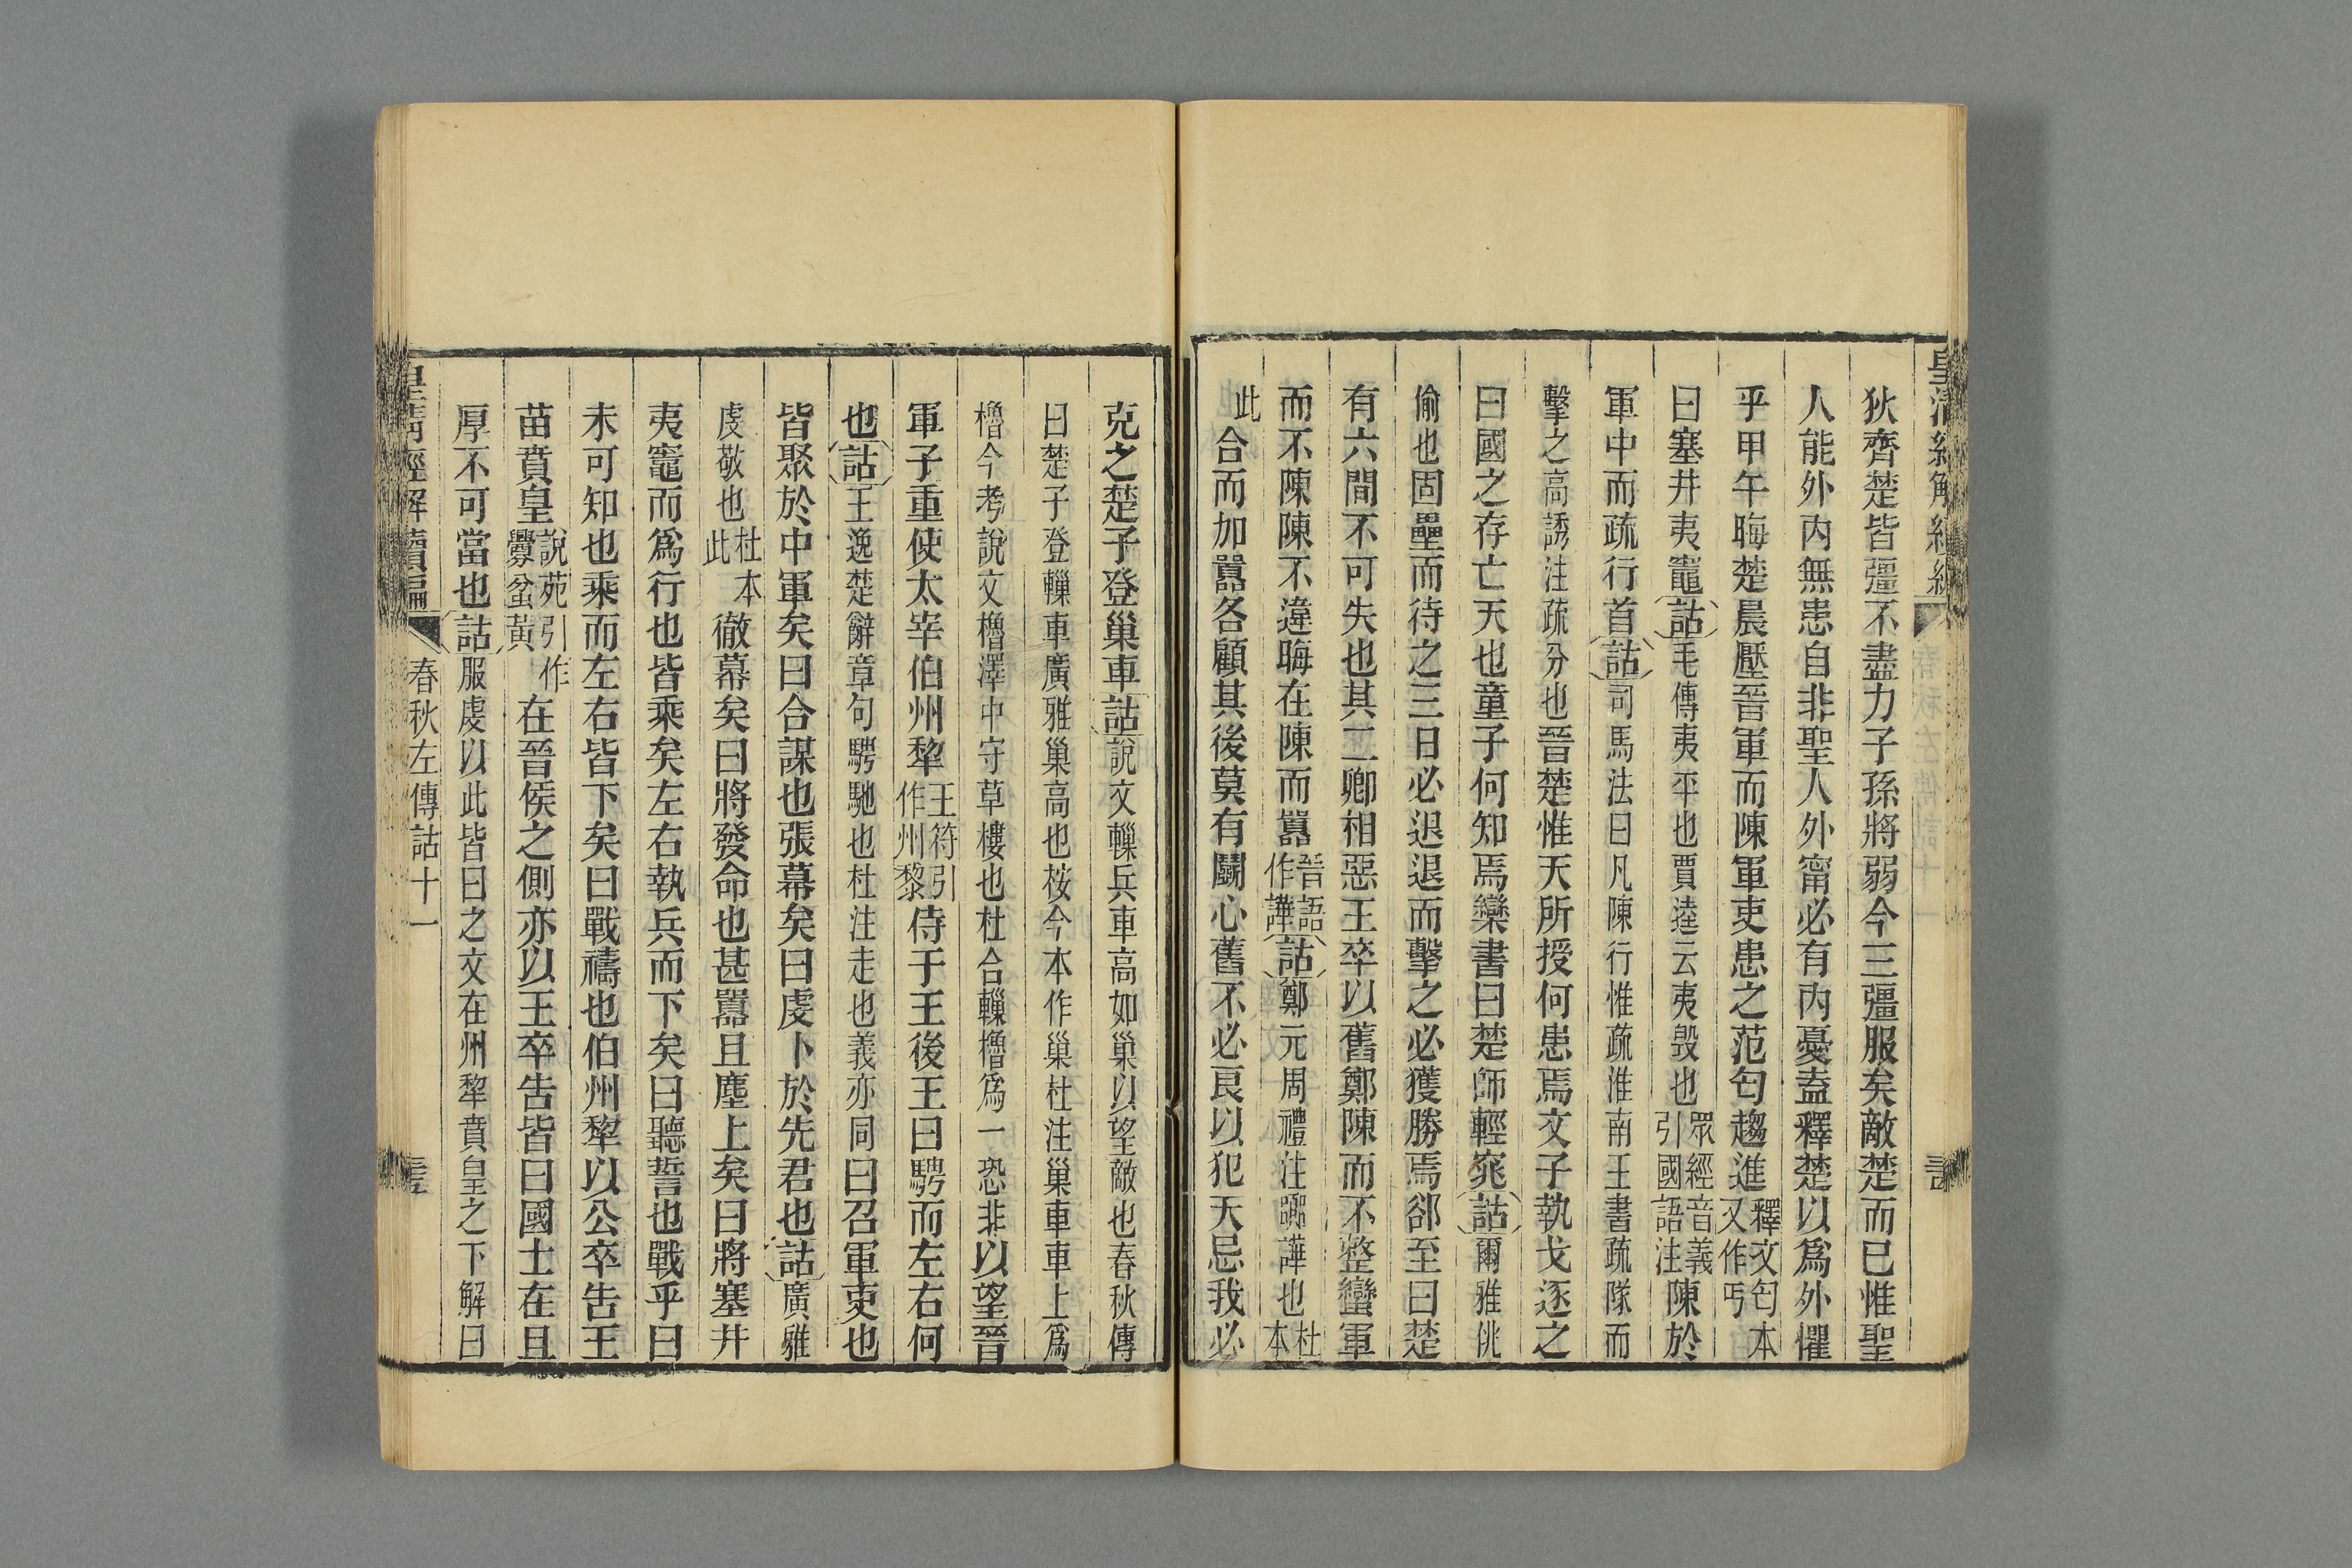 狄齊楚皆彊不盡力子孫將弱今三彊服矣敵楚而已惟聖
人能外內無患自非聖人外甯必有內憂盍釋楚以爲外懼
乎甲午晦楚晨壓晉軍而陳軍吏患之范匄趨進釋文匄本又作丐
曰塞井夷竈詁毛傳夷平也賈逵云夷毀也眾經音義引國語注陳於
軍中而疏行首詁司馬法曰凡陳行惟疏淮南王書疏隊而
擊之高誘注疏分也晉楚惟天所授何患焉文子執戈逐之
曰國之存亡天也童子何知焉欒書曰楚師輕窕詁爾雅佻
偷也固壘而待之三日必退退而擊之必獲勝焉郤至曰楚
有六間不可失也其二卿相惡王卒以舊鄭陳而不整蠻軍
而不陳陳不違晦在陳而嚻晉語作譁詁鄭元周禮注嚻譁也杜本
此合而加嚻各顧其後莫有鬬心舊不必良以犯天忌我必
克之楚子登巢車詁說文轈兵車高如巢以望敵也春秋傳
曰楚子登轈車廣雅巢高也桉今本作巢杜注巢車車上爲
櫓今考說文櫓澤中守草樓也杜合轈櫓爲一恐非以望晉
軍子重使太宰伯州犂王符引作州黎侍于王後王曰騁而左右何
也詁王逸楚辭章句騁馳也杜注走也義亦同曰召軍吏也
皆聚於中軍矣曰合謀也張幕矣曰虔卜於先君也詁廣雅
虔敬也杜本此徹幕矣曰將發命也甚嚻且塵上矣曰將塞井
夷竈而爲行也皆乘矣左右執兵而下矣曰聽誓也戰乎曰
未可知也乘而左右皆下矣曰戰禱也伯州犂以公卒告王
苗賁皇說苑引作釁盆黃在晉侯之側亦以王卒告皆曰國士在且
厚不可當也詁服虔以此皆曰之文在州犂賁皇之下解曰
皇清經解續編
春秋左傳詁十一